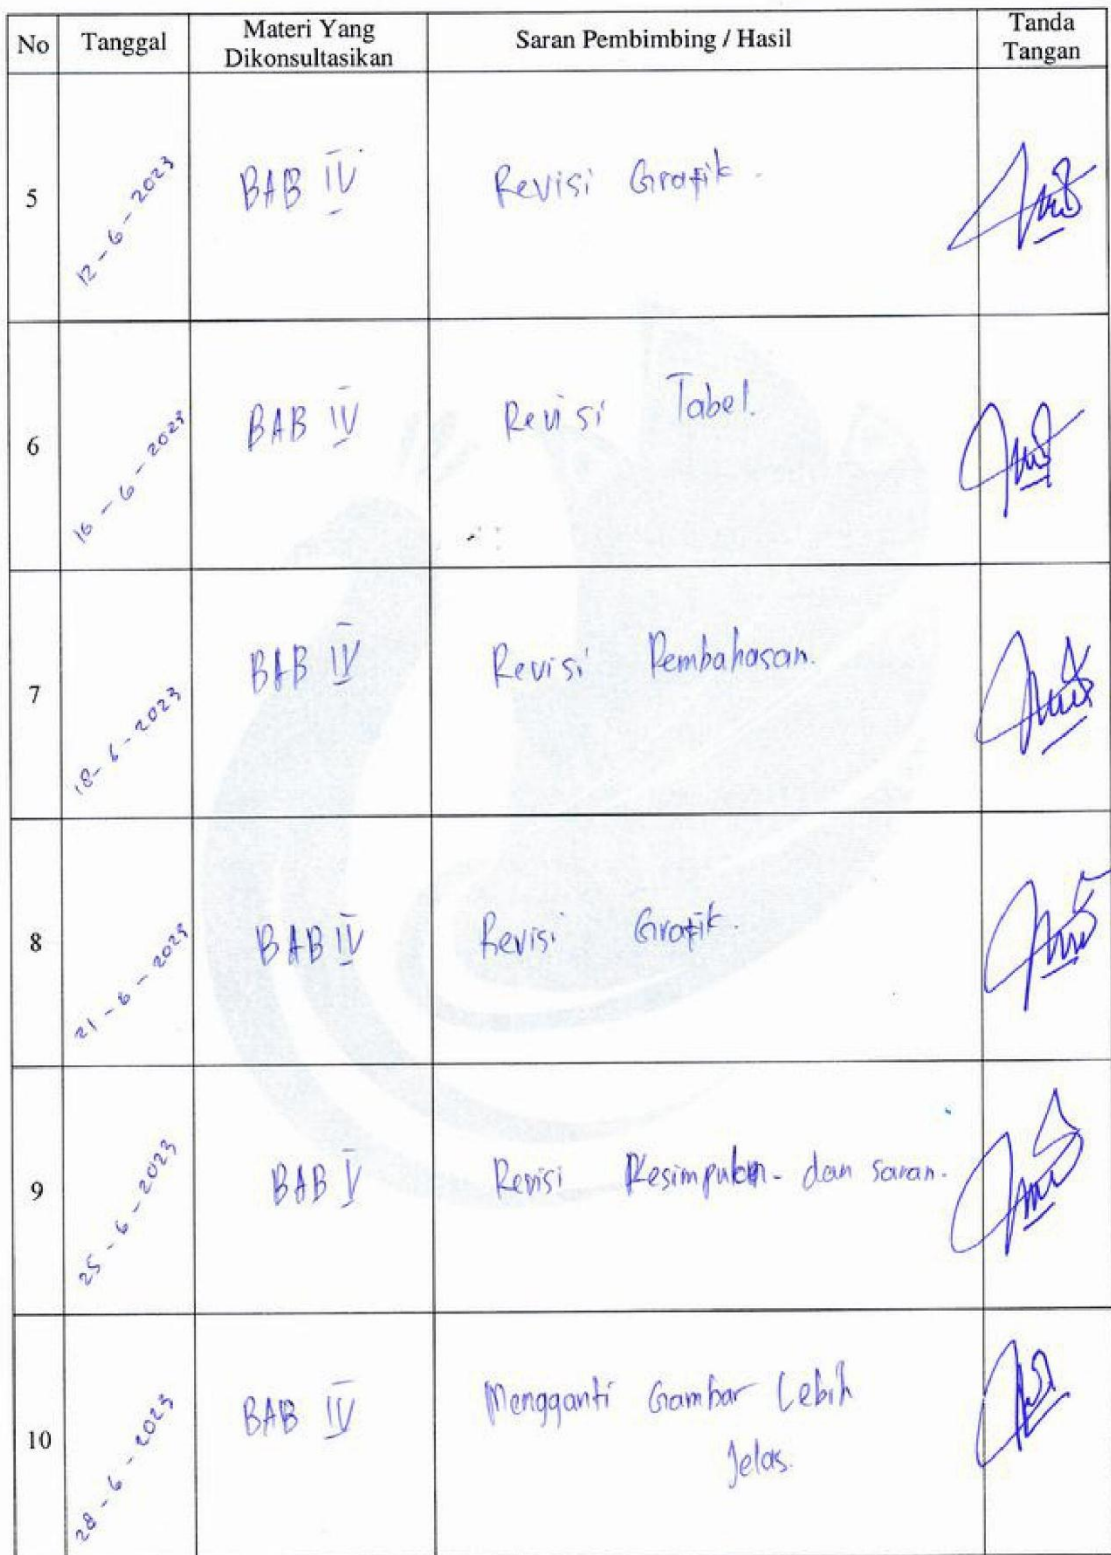 No Tanggal Materi Yang Dikonsultasikan Saran Pembimbing / Hasil Tanda Tangan
5 12-6-2023 BAB IV Revisi Grafik.
6 16-6-2023 BAB IV Revisi Tabel.
7 18-6-2023 BAB IV Revisi Pembahasan.
8 21-6-2023 BAB IV Revisi Grafik.
9 25-6-2023 BAB V Revisi Kesimpulan - dan saran.
10 28-6-2023 BAB IV Mengganti Gambar Lebih
Jelas.